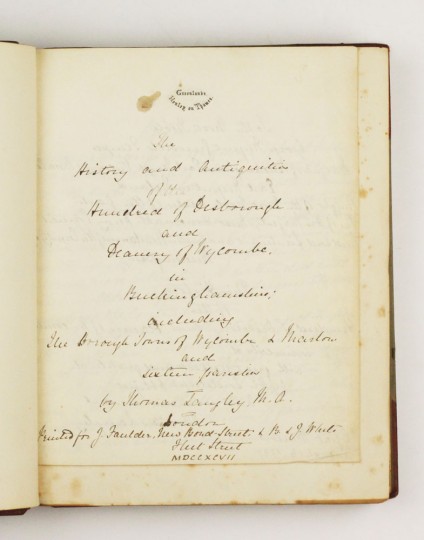 Greenlands
Henley on Thames
The
History and Antiquities
of the
Hundred of Desborough
and
Deanery of Wycombe.
in
Buckinghamshire;
including
The Borough Towns of Wycombe & Marlow
and
sixteen parishes
by Thomas Langley, M.A.
London
Printed for J. Faulder, New Bond Street & B & J. White
Fleet Street
MDCCXCVII